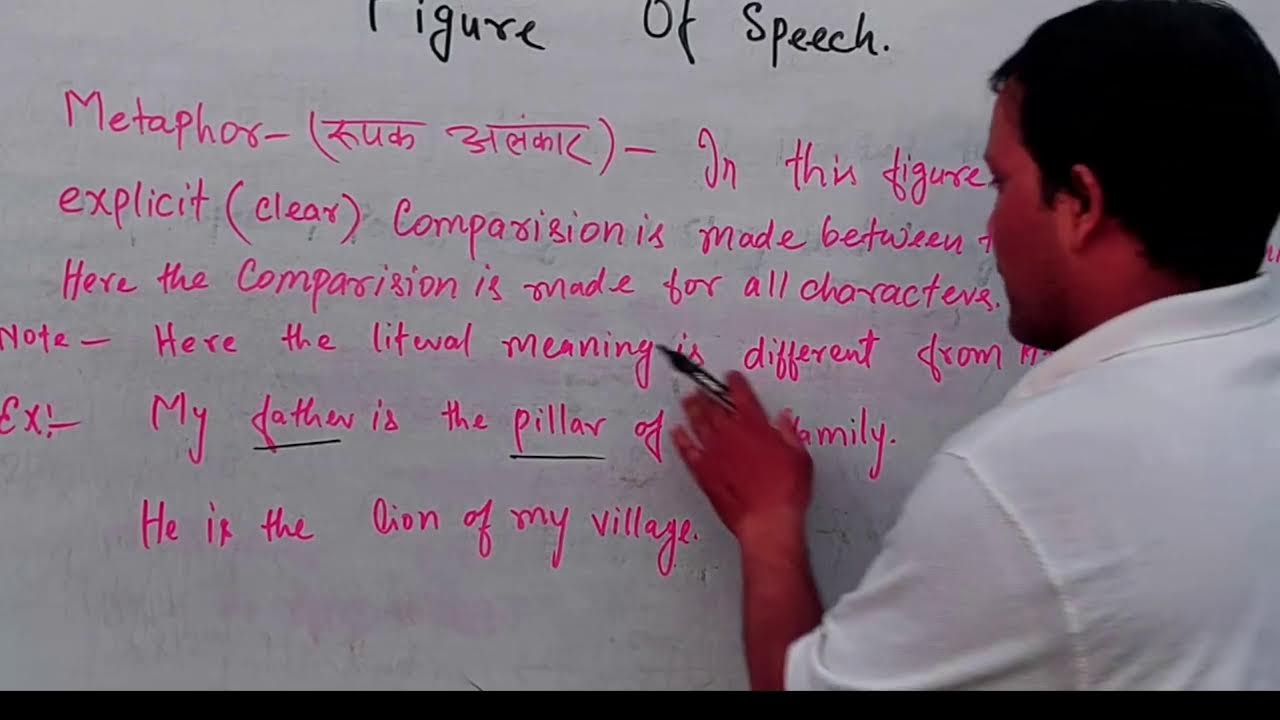 Figure Of Speech.
Metaphor- (रूपक अलंकार) - In this figure
explicit (clear) Comparision is made between
Here the Comparision is made for all characters.
Note - Here the literal meaning is different from
Ex:- My father is the pillar of family.
He is the lion of my village.